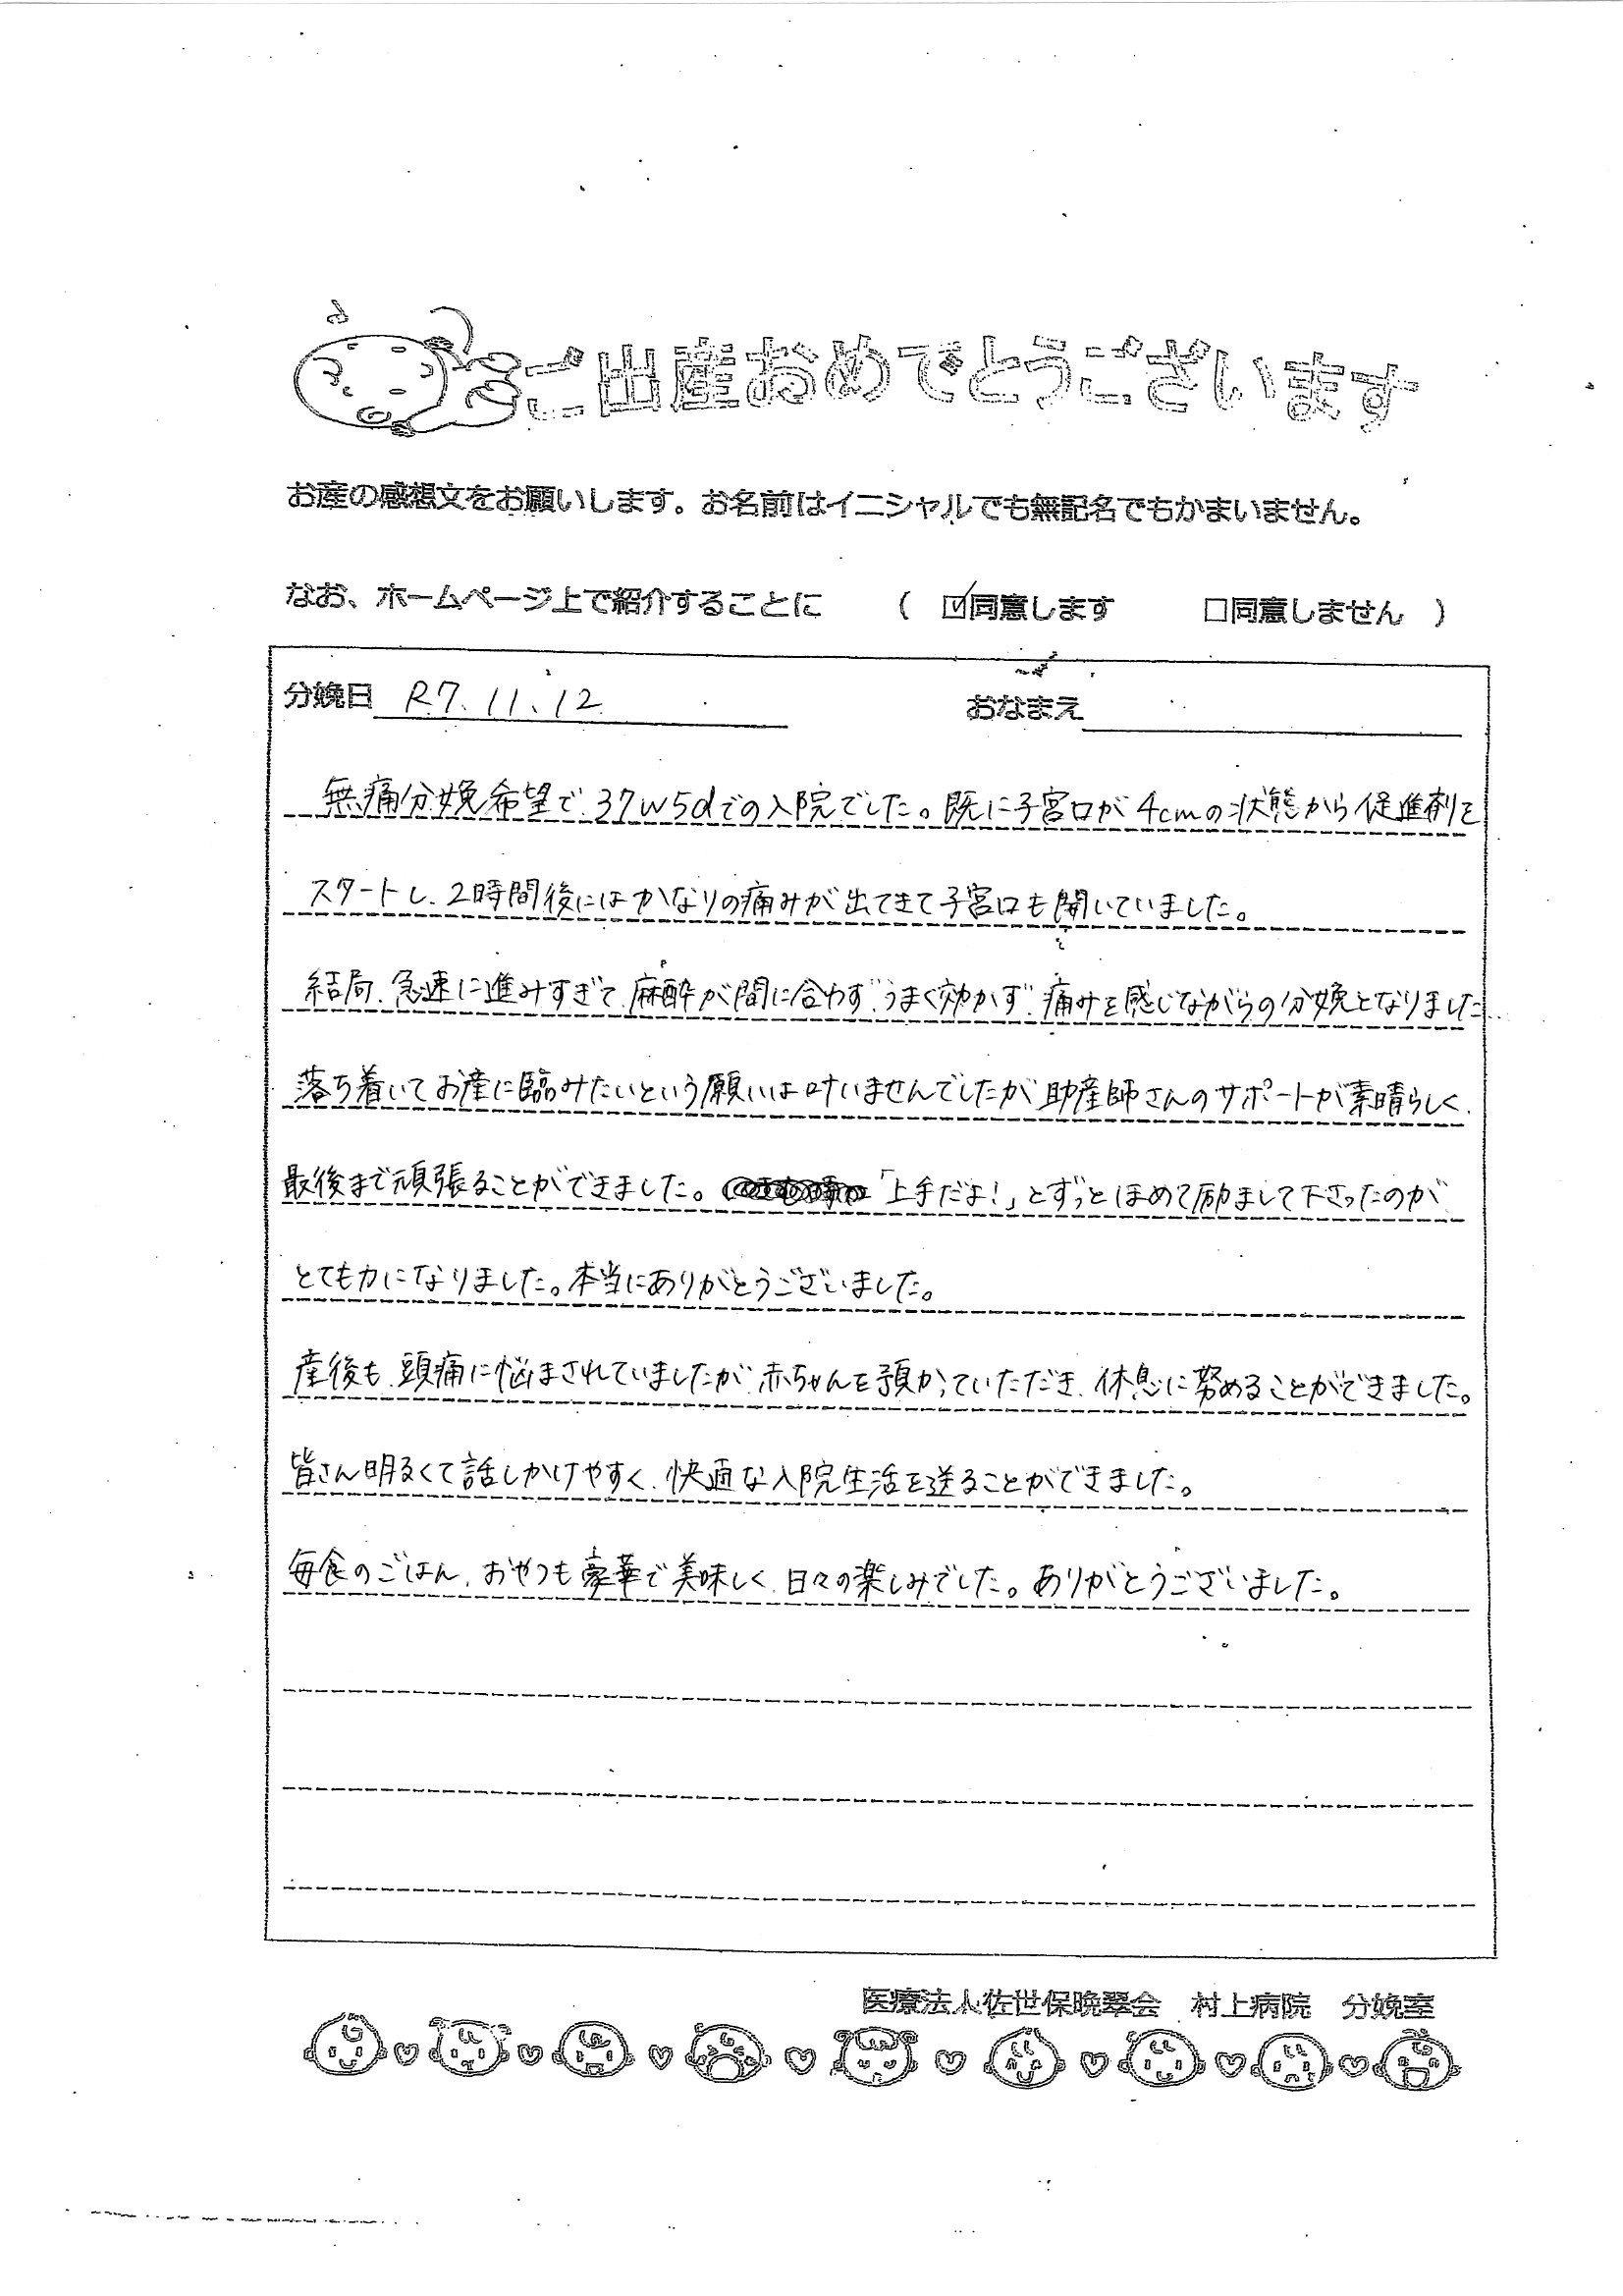 ご出産おめでとうございます
お産の感想文をお願いします。お名前はイニシャルでも無記名でもかまいません。
なお、ホームページ上で紹介することに ( ☑同意します □同意しません )
分娩日 R7.11.12 おなまえ
無痛分娩希望で、37w5dでの入院でした。既に子宮口が4cmの状態から促進剤を
スタートし、2時間後にはかなりの痛みが出てきて子宮口も開いていました。
結局、急速に進みすぎて、麻酔が間に合わず、うまく効かず、痛みを感じながらの分娩となりました
落ち着いてお産に臨みたいという願いは叶いませんでしたが助産師さんのサポートが素晴らしく、
最後まで頑張ることができました。「上手だよ!」とずっとほめて励まして下さったのが
とても力になりました。本当にありがとうございました。
産後も、頭痛に悩まされていましたが、赤ちゃんを預かっていただき、休息に努めることができました。
皆さん明るくて話しかけやすく、快適な入院生活を送ることができました。
毎食のごはん、おやつも豪華で美味しく、日々の楽しみでした。ありがとうございました。
医療法人佐世保晩翠会 村上病院 分娩室